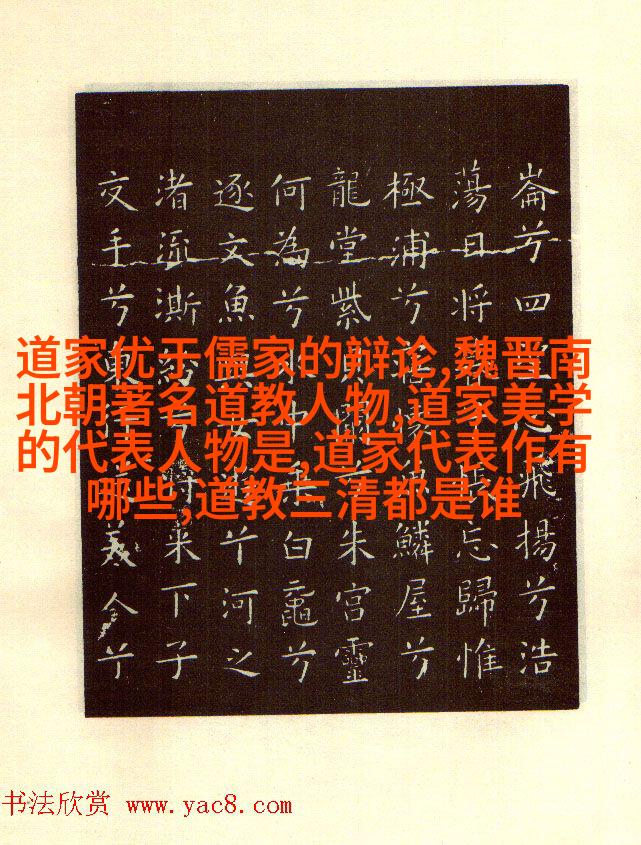 道家优于儒家的辩论,魏晋南
北朝著名道教人物,道家美学
的代表人物是,道家代表作有
哪些,道教三清都是谁
崙兮四飛揚兮浩
蕩日將忘歸惟
極浦兮懷鱗屋兮
龍堂紫朱宮靈
何為兮水中乘白黿兮
逐文魚兮河之
渚流澌紛將來下子
交手兮東行美人兮
书法欣赏 www.yac8.com